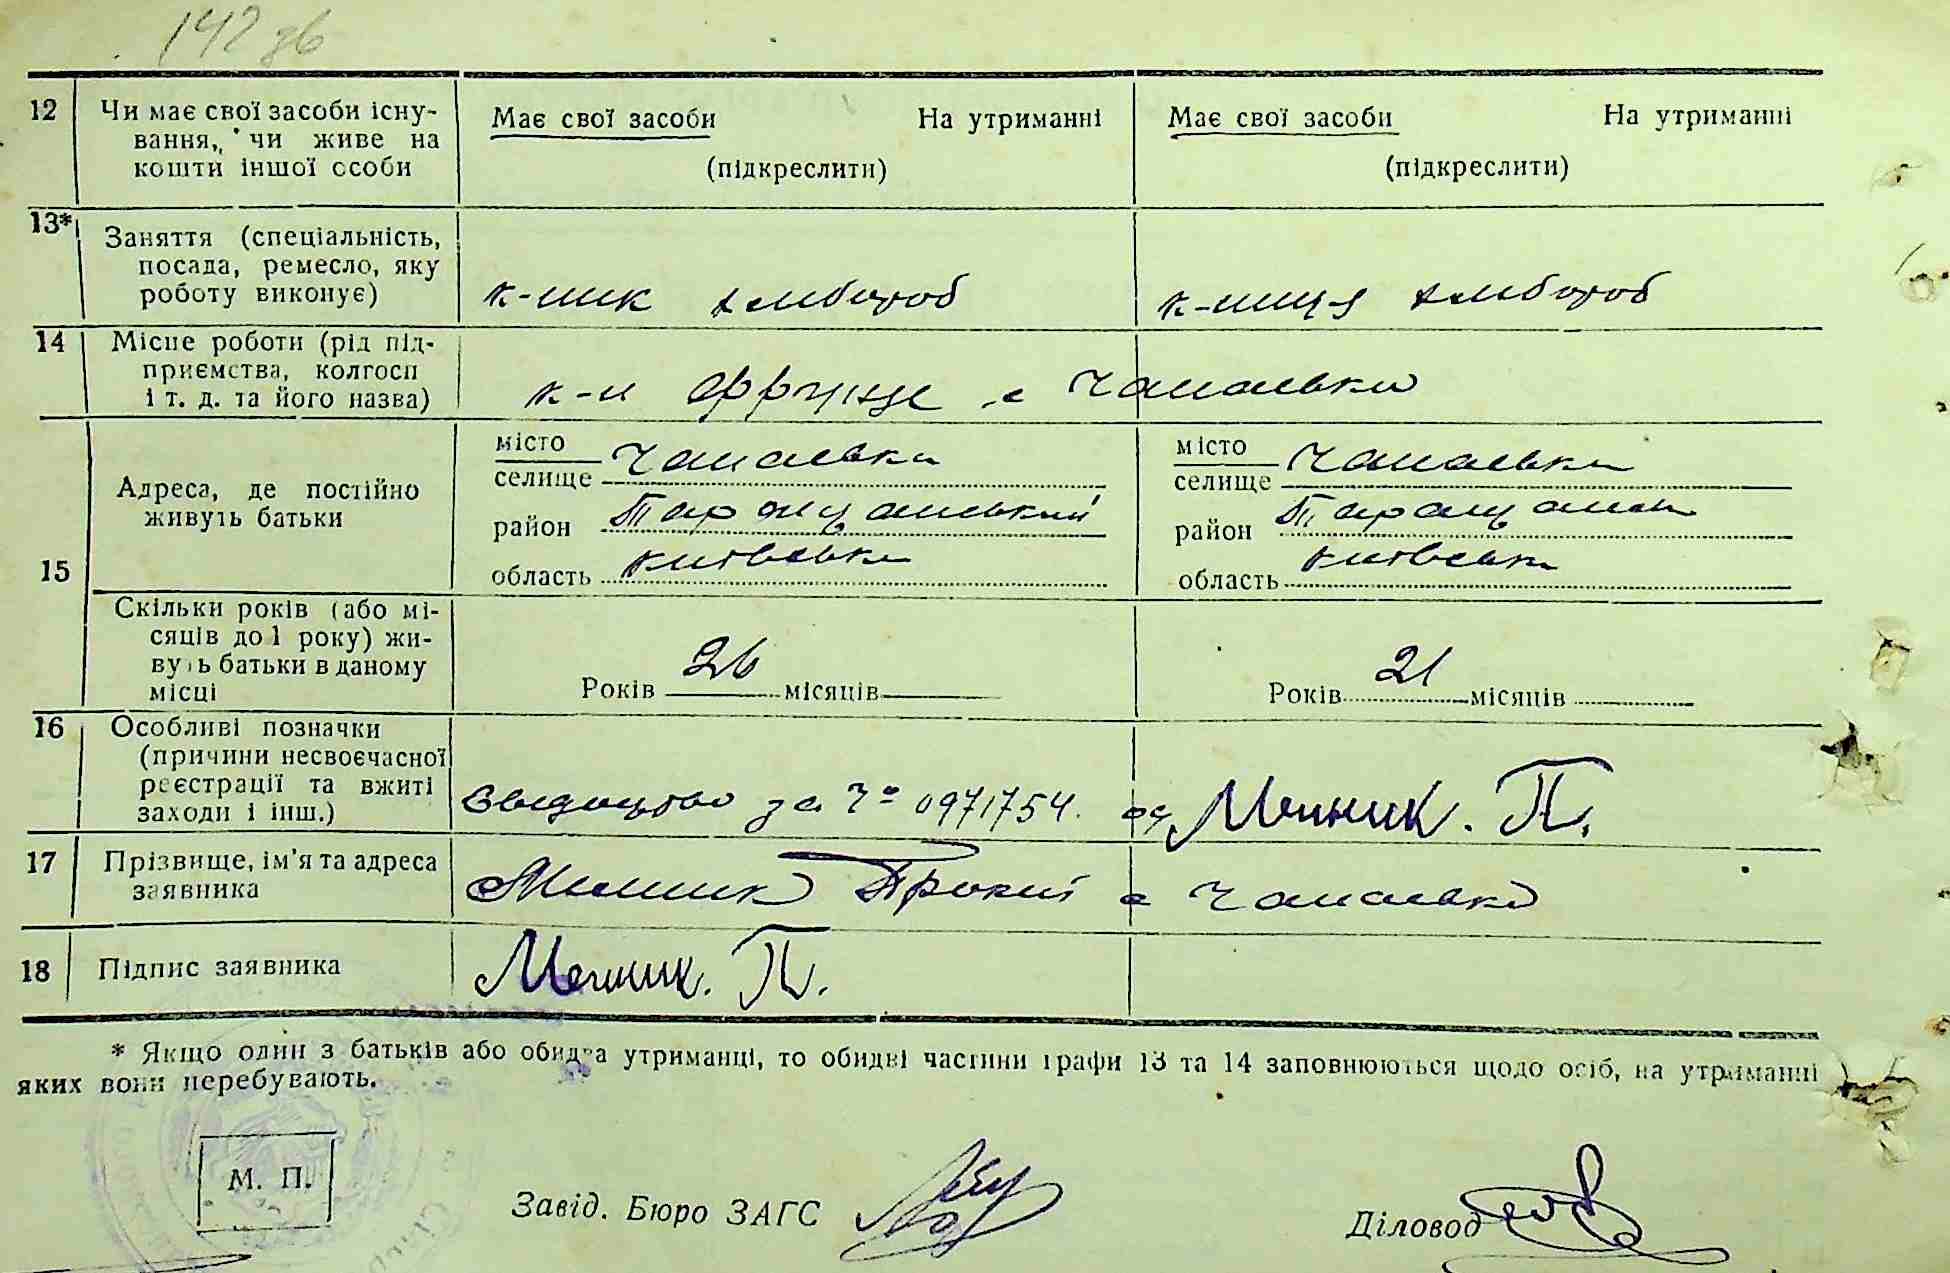 142 зв
12 Чи має свої засоби існу-
вання, чи живе на
кошти іншої особи
Має свої засоби На утриманні
(підкреслити)
Має свої засоби На утриманні
(підкреслити)
13* Заняття (спеціальність,
посада, ремесло, яку
роботу виконує)
к-ник хлібороб
к-ниця хлібороб
14 Місце роботи (рід під-
приємства, колгосп
і т. д. та його назва)
к-п Фрунзе с Чапаєвка
15 Адреса, де постійно
живуть батьки
місто
селище Чапаєвка
район Таращанський
область Київська
місто
селище Чапаєвка
район Таращанськ
область Київськ
Скільки років (або мі-
сяців до 1 року) жи-
вуть батьки в даному
місці
Років 26 місяців
Років 21 місяців
16 Особливі позначки
(причини несвоєчасної
реєстрації та вжиті
заходи і інш.)
за Ч° 0971754 Мельник. П.
17 Прізвище, ім'я та адреса
заявника
Мельник Прокіп с Чапаєвка
18 Підпис заявника
Мельник. П.
* Якщо один з батьків або обидва утриманці, то обидві частини графи 13 та 14 заповнюються щодо осіб, на утриманні
яких вони перебувають.
М. П.
Завід. Бюро ЗАГС
Діловод